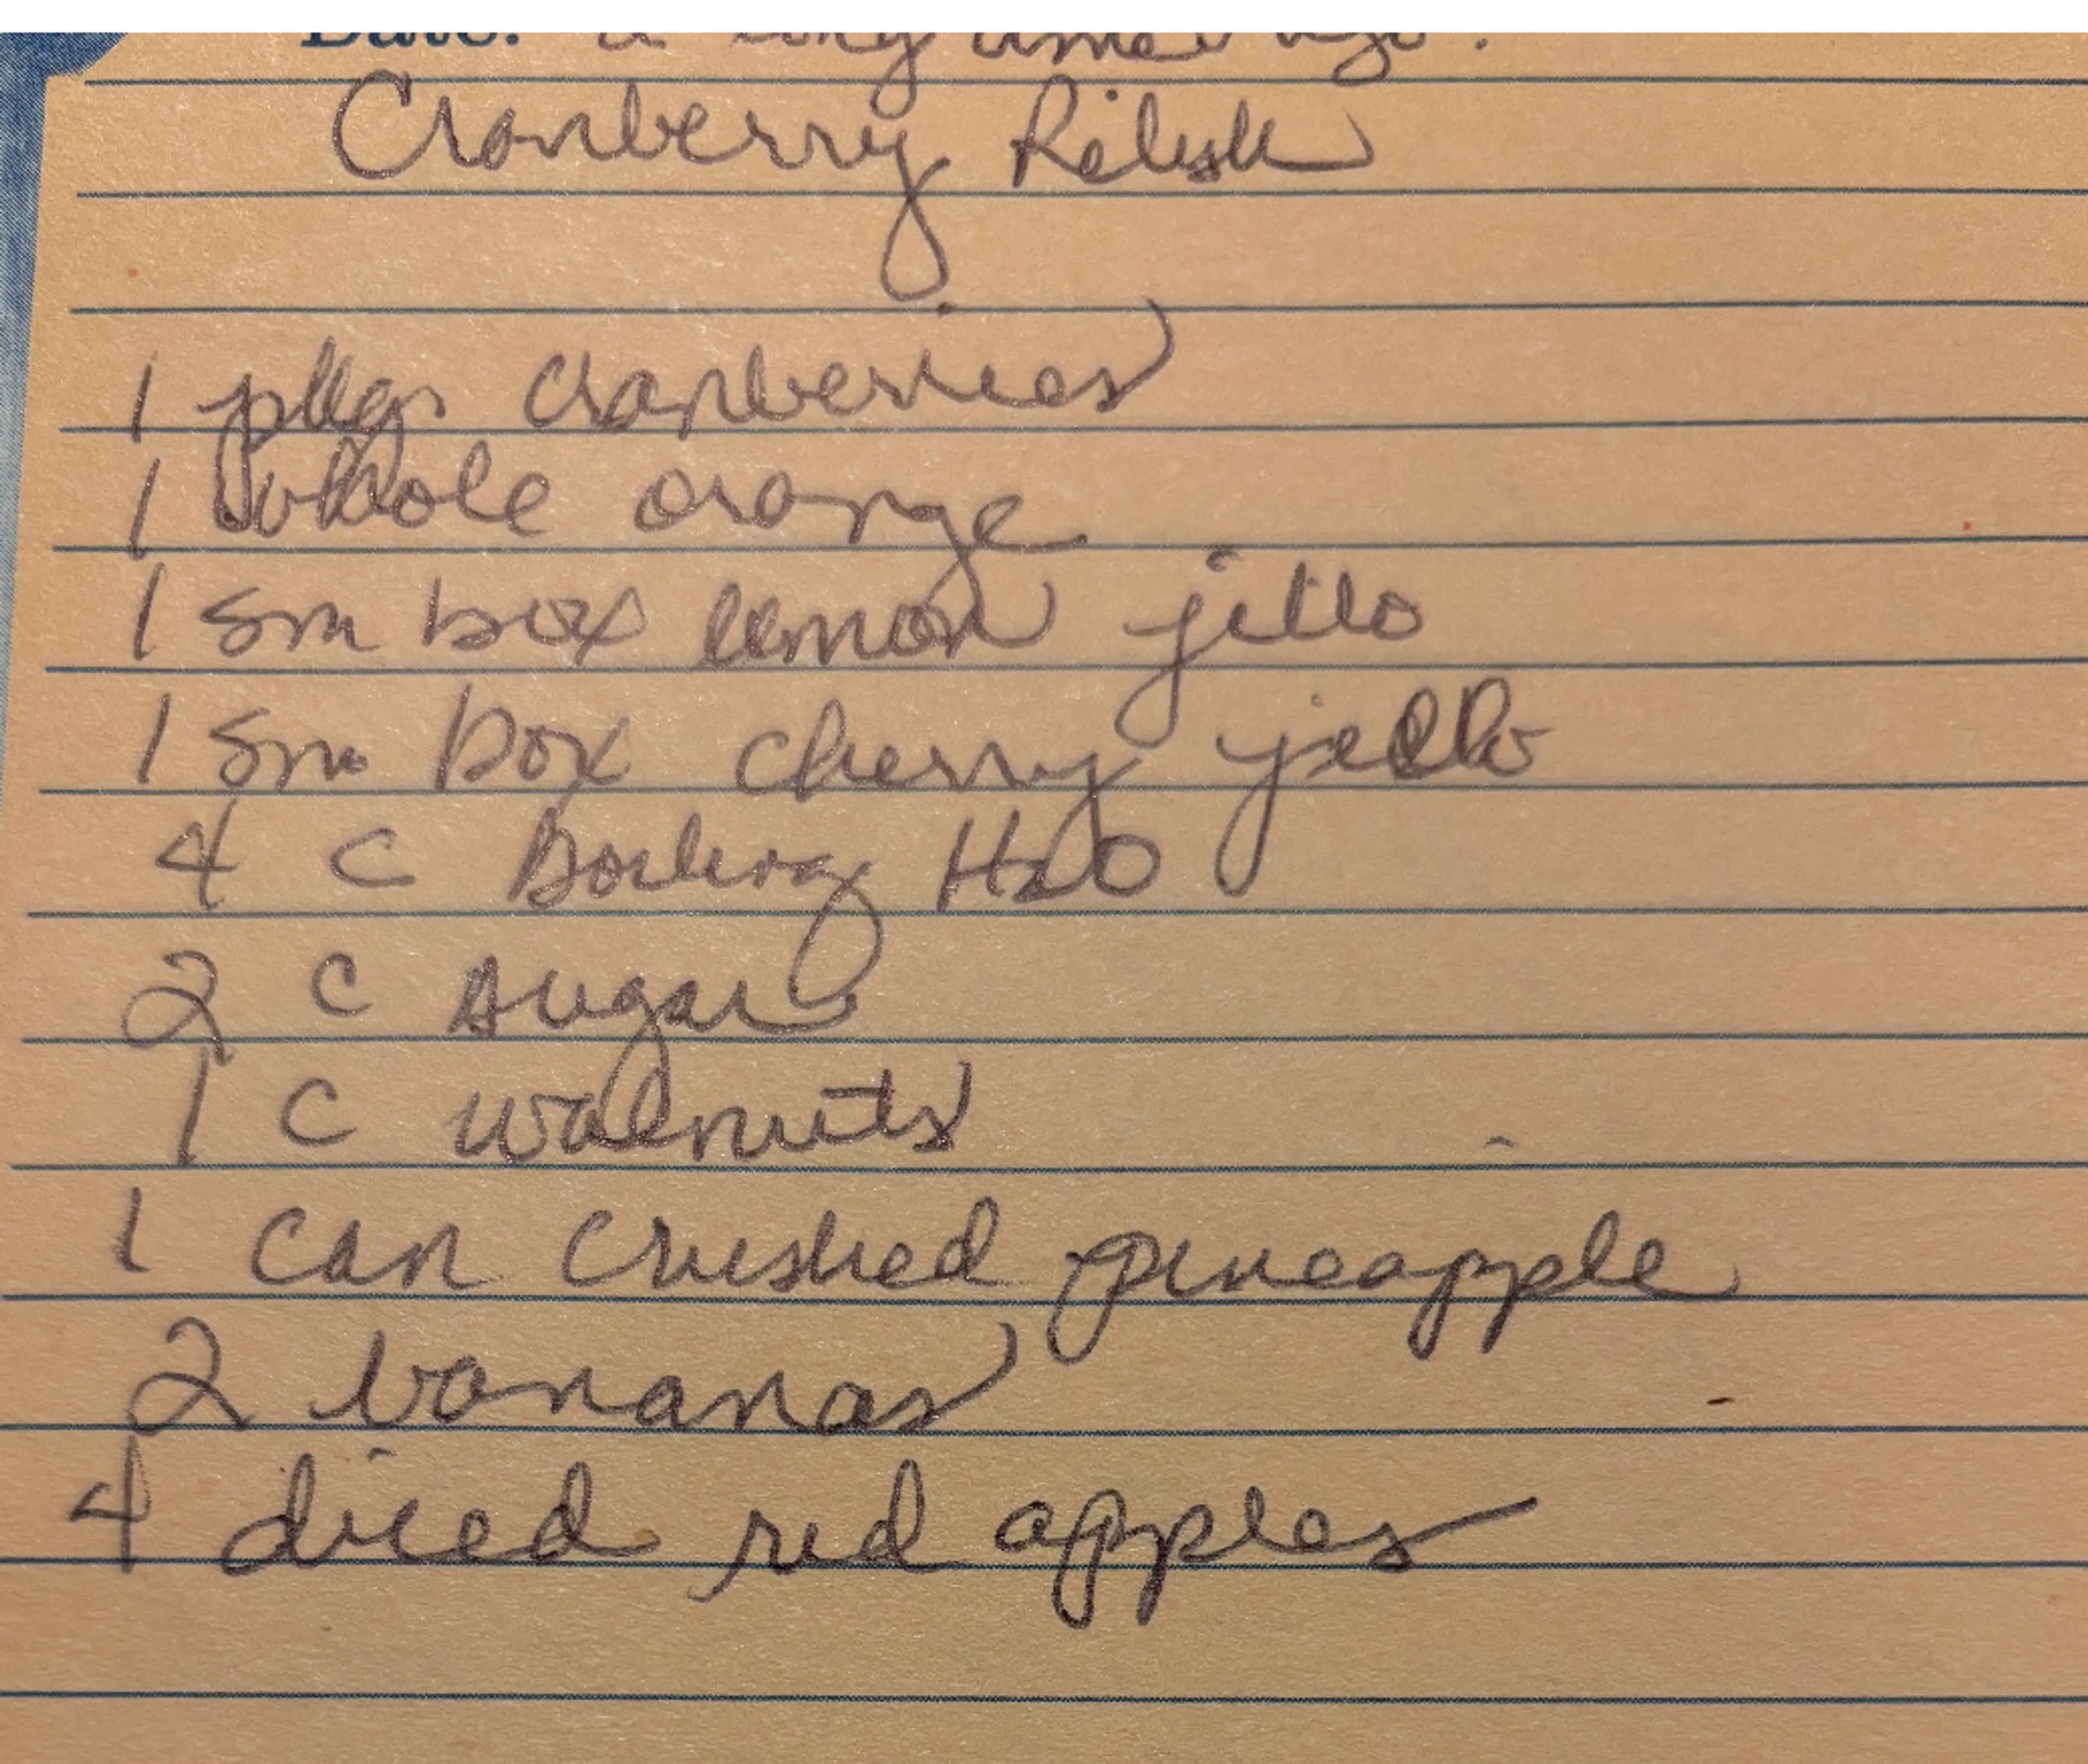 Date: a long time ago.
Cranberry Relish
1 pkg cranberries
1 whole orange
1 sm box lemon jello
1 sm box cherry jello
4 C Boiling H2O
2 C sugar
1 C walnuts
1 can crushed pineapple
2 bananas
4 diced red apples